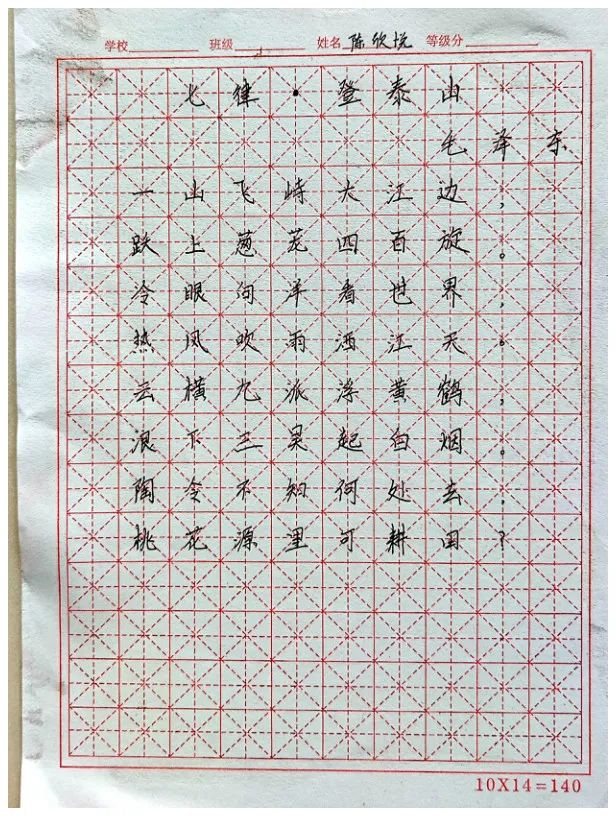 学校 班级 姓名 陈欣悦 等级分
七律·登泰山
毛泽东
一山飞峙大江边，
跃上葱茏四百旋。
冷眼向洋看世界，
热风吹雨洒江天。
云横九派浮黄鹤，
浪下三吴起白烟。
陶令不知何处去，
桃花源里可耕田？
10X14=140